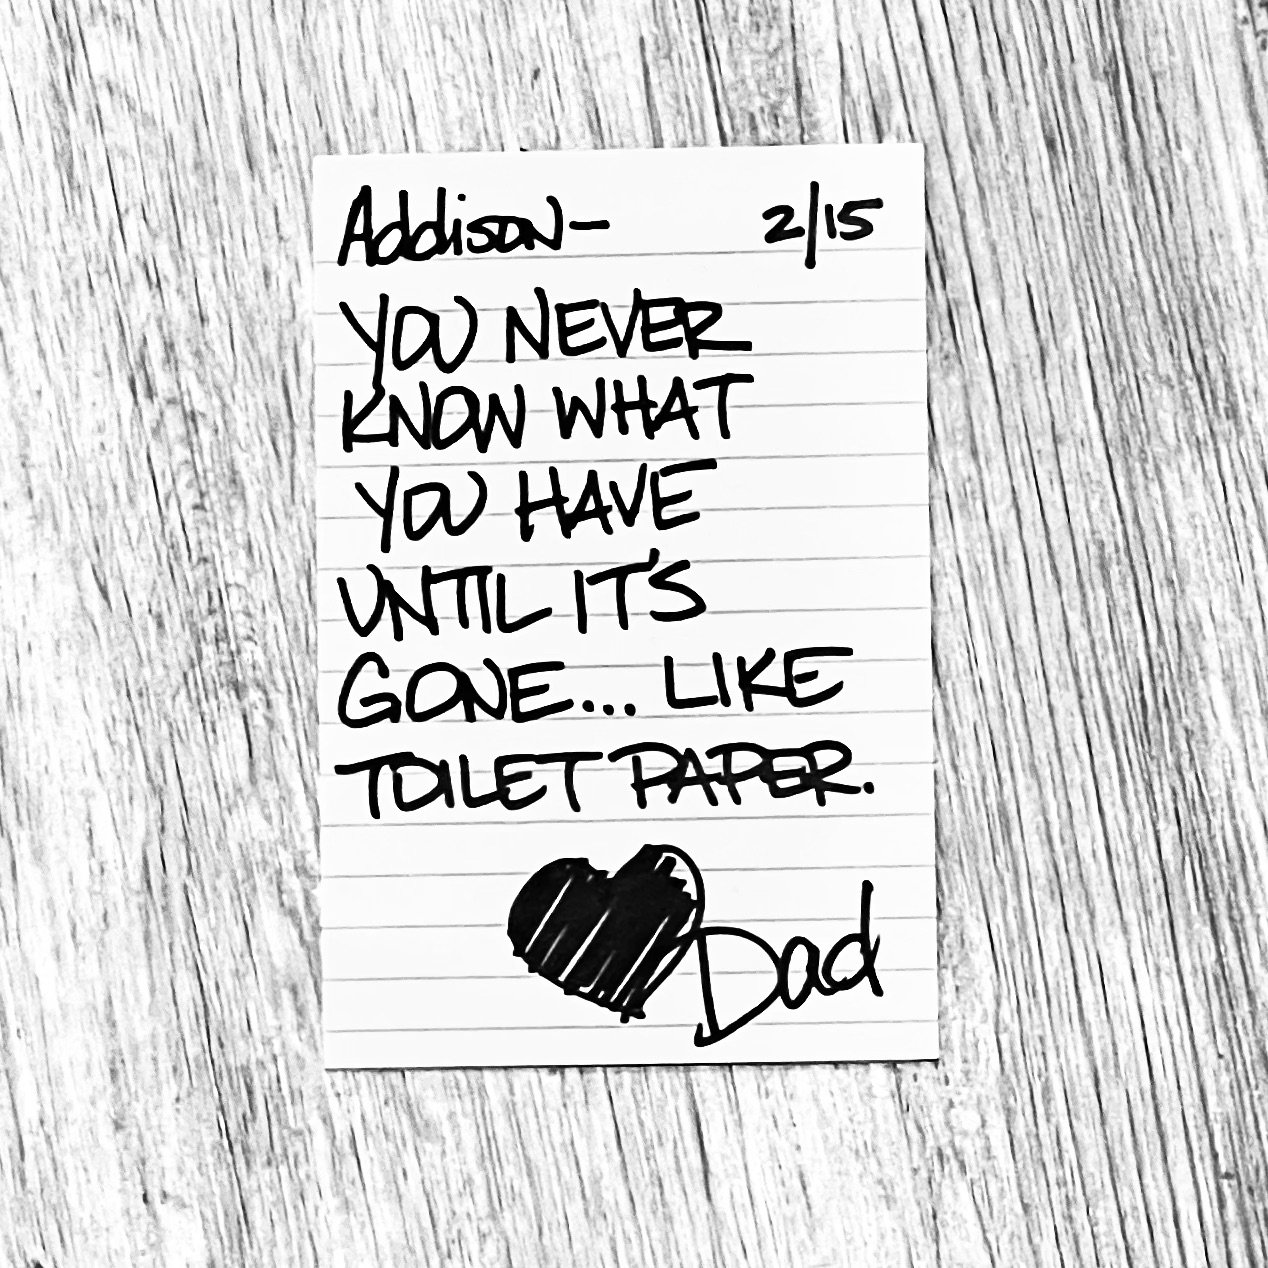 Addison- 2/15
YOU NEVER
KNOW WHAT
YOU HAVE
UNTIL IT'S
GONE... LIKE
TOILET PAPER.
Dad